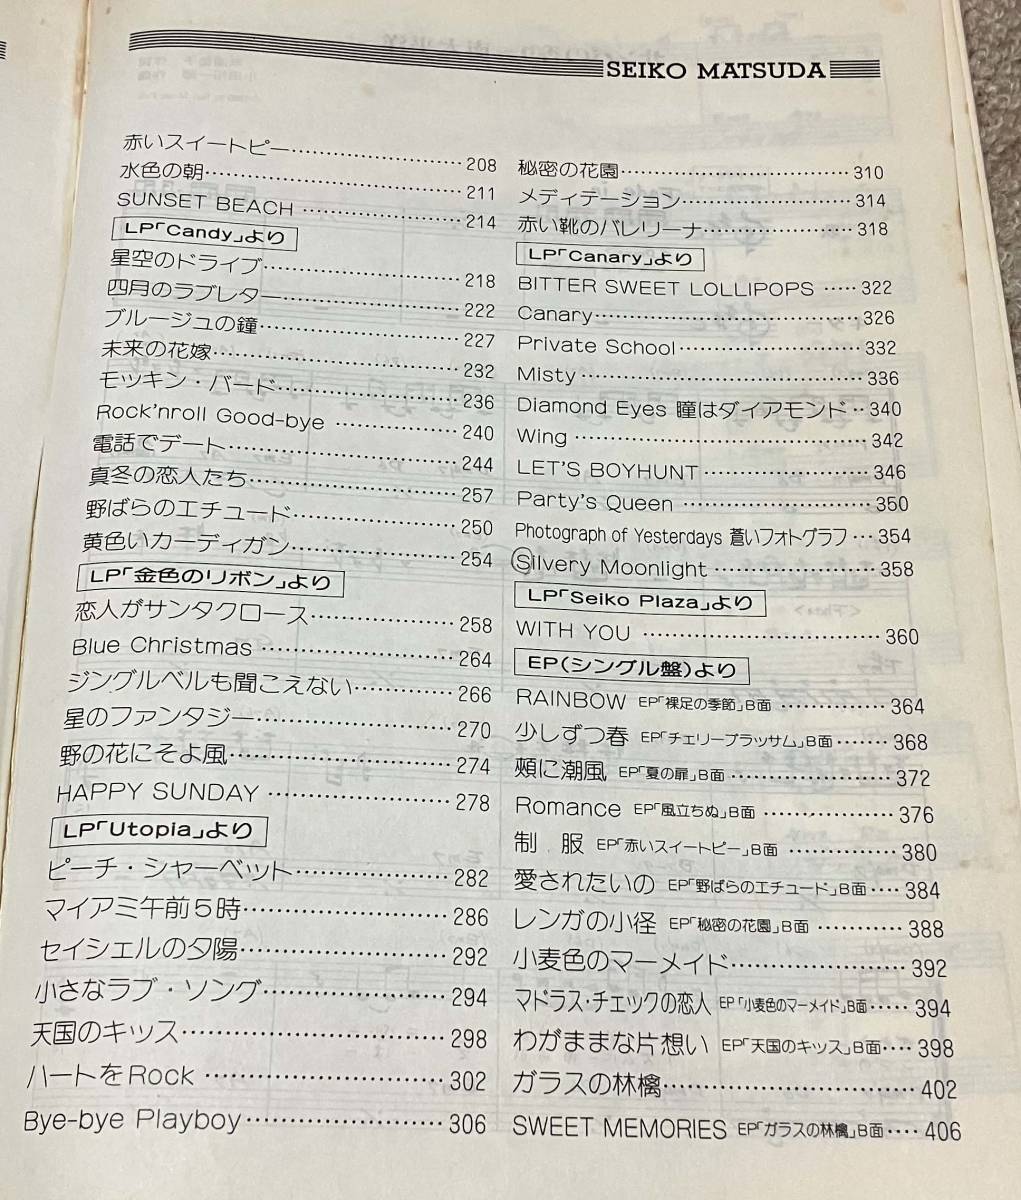 SEIKO MATSUDA
赤いスイートピー……………………208
水色の朝……………………211
SUNSET BEACH ……………………214
LP「Candy」より
星空のドライブ……………………218
四月のラブレター……………………222
ブルージュの鐘……………………227
未来の花嫁……………………232
モッキン・バード……………………236
Rock'nroll Good-bye ……………………240
電話でデート……………………244
真冬の恋人たち……………………257
野ばらのエチュード……………………250
黄色いカーディガン……………………254
LP「金色のリボン」より
恋人がサンタクロース……………………258
Blue Christmas ……………………264
ジングルベルも聞こえない……………………266
星のファンタジー……………………270
野の花にそよ風……………………274
HAPPY SUNDAY ……………………278
LP「Utopia」より
ピーチ・シャーベット……………………282
マイアミ午前5時……………………286
セイシェルの夕陽……………………292
小さなラブ・ソング……………………294
天国のキッス……………………298
ハートをRock ……………………302
Bye-bye Playboy……………………306
秘密の花園……………………310
メディテーション……………………314
赤い靴のバレリーナ……………………318
LP「Canary」より
BITTER SWEET LOLLIPOPS ……322
Canary……………………326
Private School……………………332
Misty……………………336
Diamond Eyes 瞳はダイアモンド…340
Wing ……………………342
LET'S BOYHUNT……………………346
Party's Queen ……………………350
Photograph of Yesterdays 蒼いフォトグラフ…354
Silvery Moonlight ……………………358
LP「Seiko Plaza」より
WITH YOU ……………………360
EP(シングル盤)より
RAINBOW EP「裸足の季節」B面 ……………364
少しずつ春 EP「チェリーブラッサム」B面……368
頰に潮風 EP「夏の扉」B面 ……………372
Romance EP「風立ちぬ」B面 ……………376
制 服 EP「赤いスイートピー」B面 ……………380
愛されたいの EP「野ばらのエチュード」B面……384
レンガの小径 EP「秘密の花園」B面 …………388
小麦色のマーメイド……………………392
マドラス・チェックの恋人 EP「小麦色のマーメイド」B面……394
わがままな片想い EP「天国のキッス」B面……398
ガラスの林檎……………………402
SWEET MEMORIES EP「ガラスの林檎」B面……406